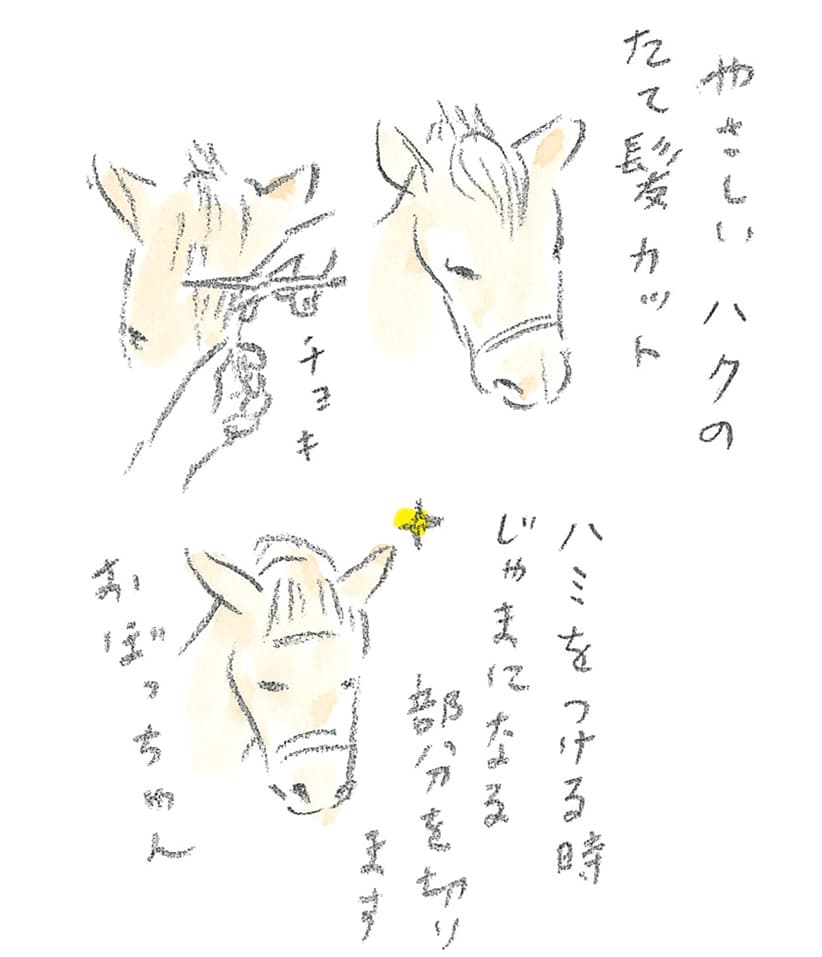 やさしい ハクの
たて髪カット
チョキ
ハミをつける時
じゃまになる
部分を切り
ます
おぼっちゃん